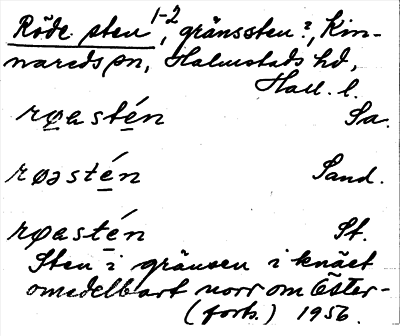 Röde sten 1-2, gränssten?, Kin-
nareds sn, Halmstads hd,
Hall. l.
røastén Sa.
røəstén Sand.
røastén St.
Sten i gränsen i knäet
omedelbart norr om Öster-
(forts.) 1956.